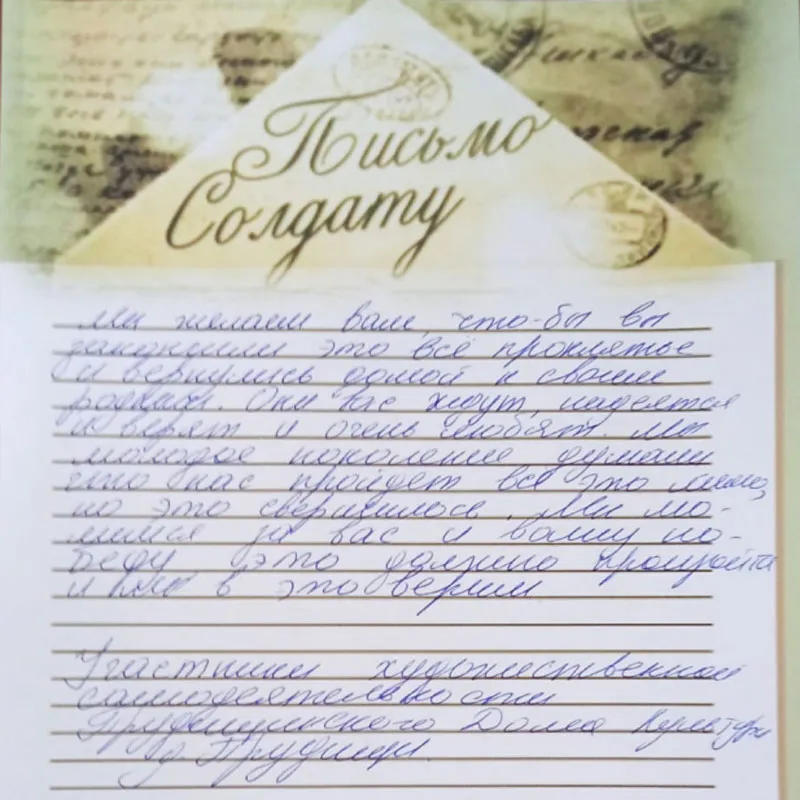 Письмо
Солдату
Мы желаем вам, что-бы вы
закончили это всё проклятье
и вернулись домой к своим
родным. Они вас ждут, надеятся
и верят и очень любят. Мы
молодое поколение думали
что нас пройдет всё это мимо,
но это свершилось. Мы мо-
лимся за вас и вашу по-
беду, это должно произойти
и мы в это верим
Участники художественной
самодеятельности
Прудищинского Дома Культуры
д. Прудищи.